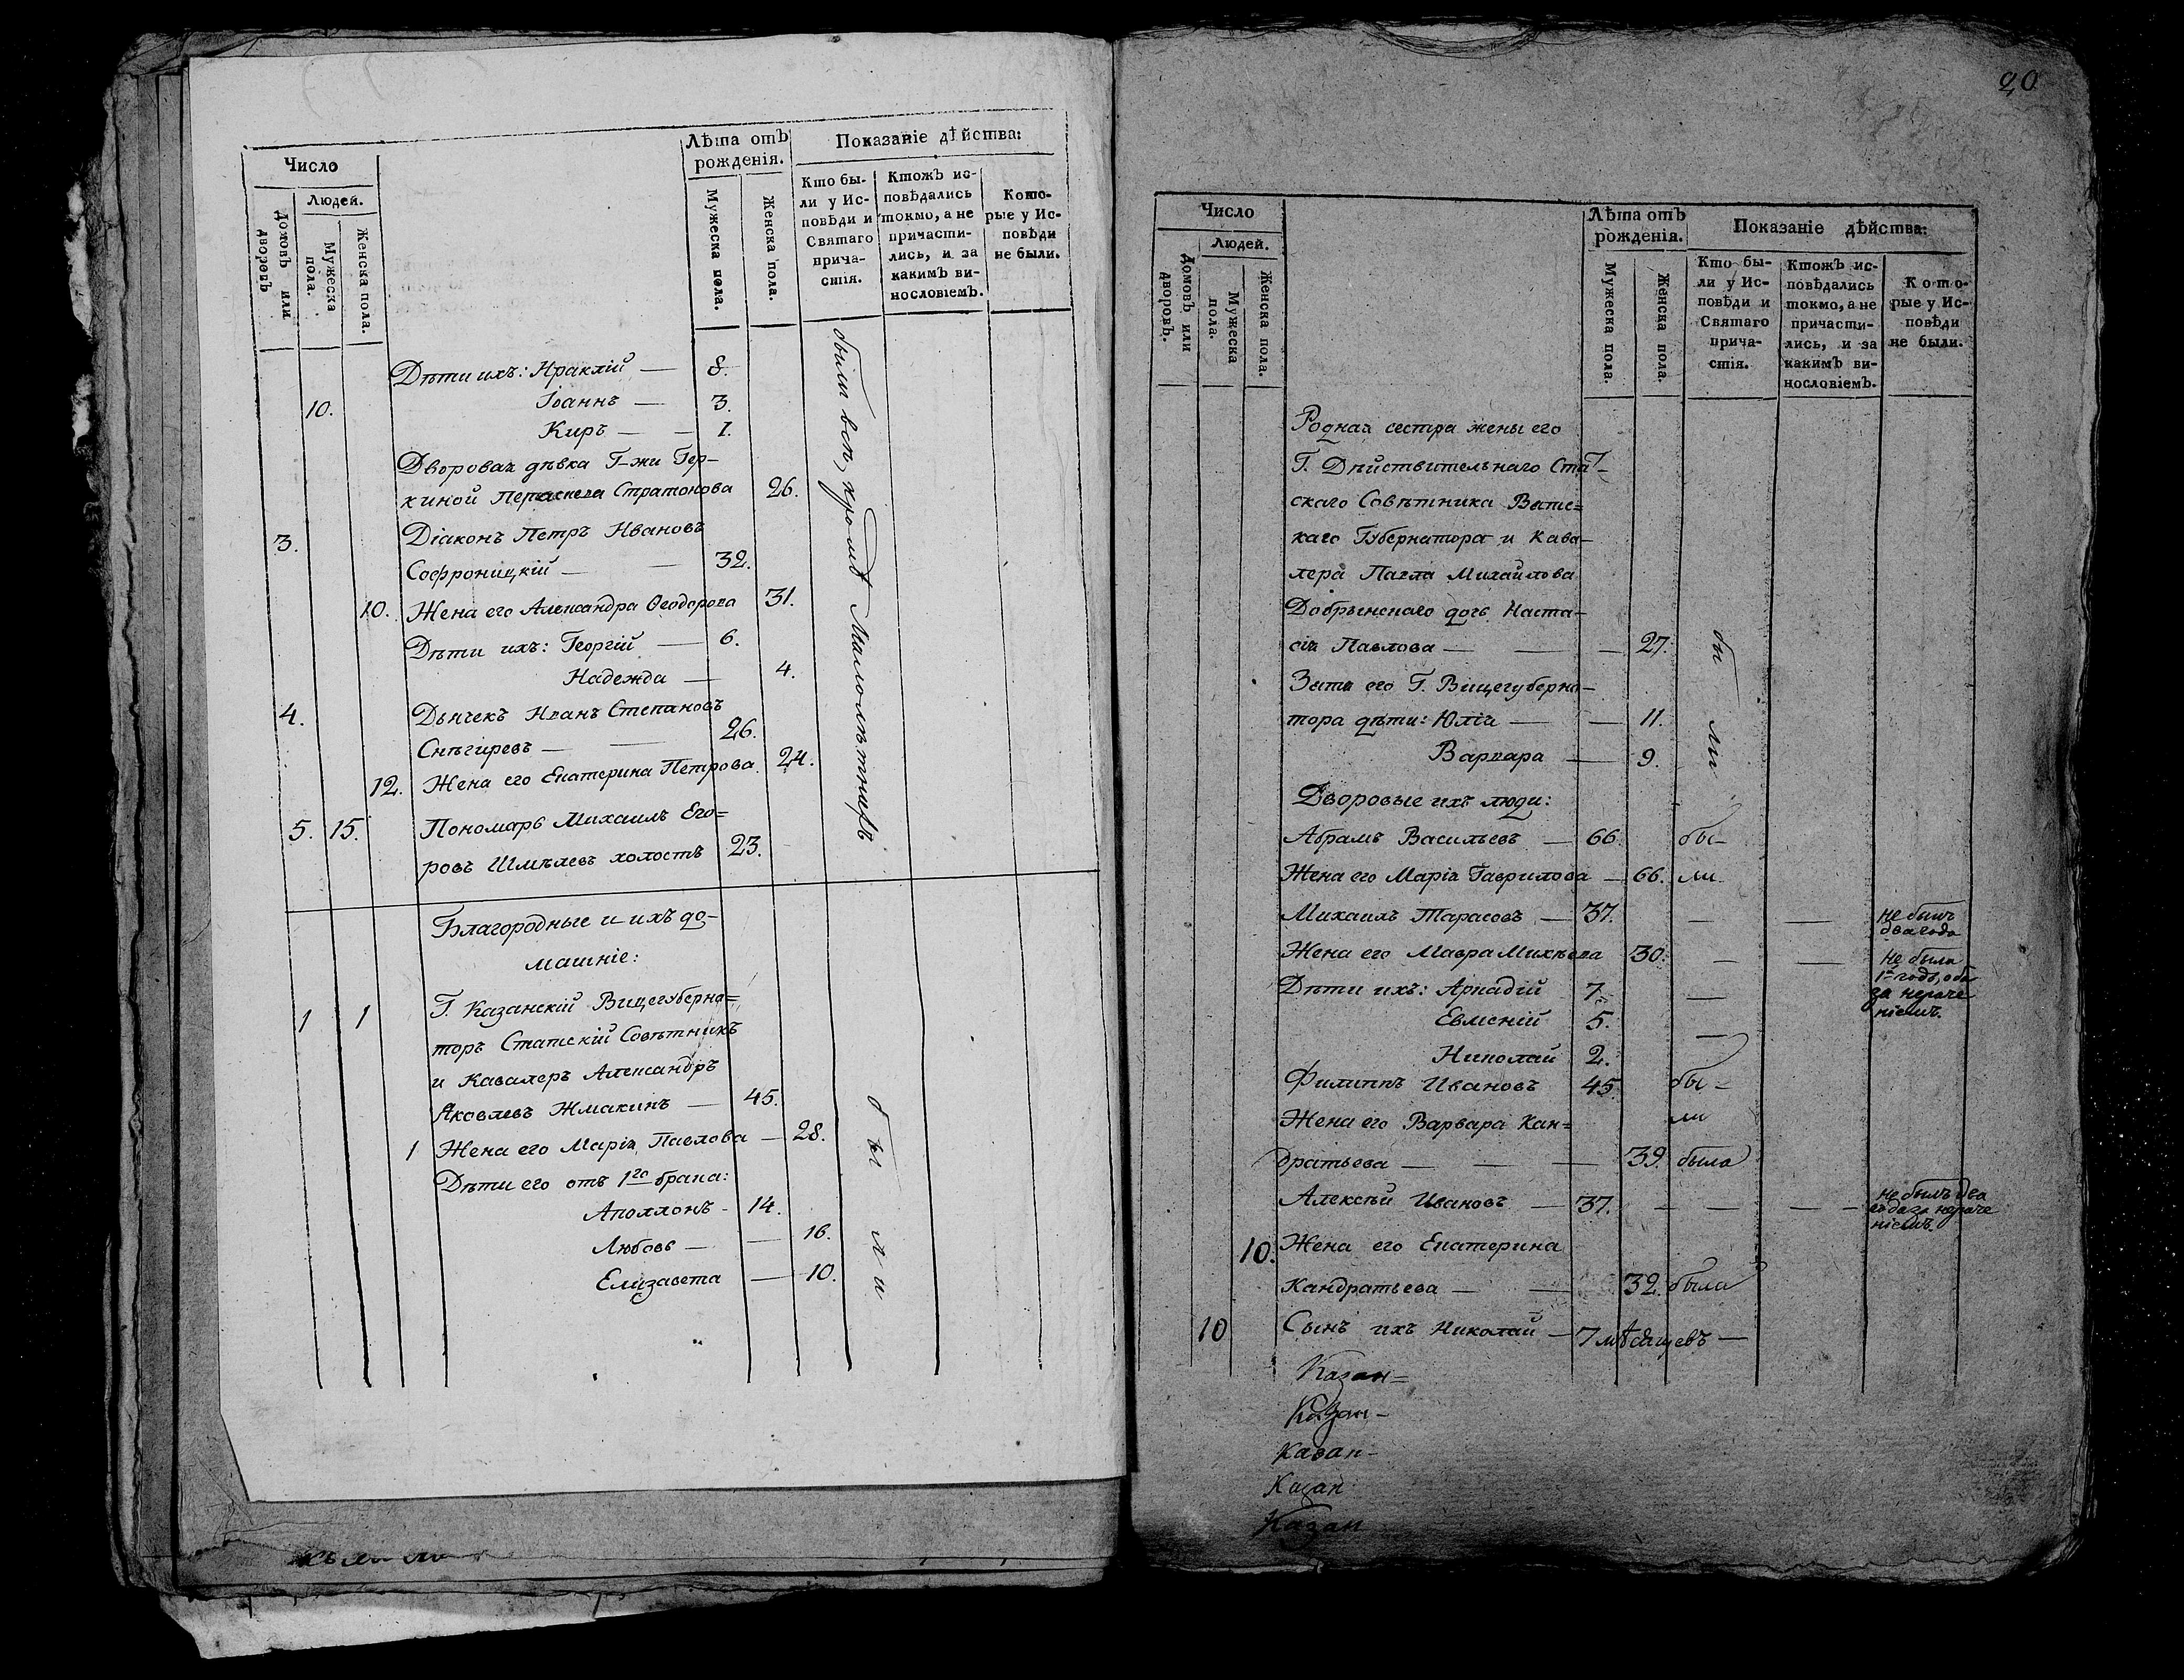 Число
Людей.
Домовъ или дворовъ
Мужеска пола.
Женска пола.
Лѣта отъ рожденія.
Мужеска пола.
Женска пола.
Показаніе дѣйства:
Кто бы-
ли у Ис-
повѣди и
Святаго
прича-
стія.
Ктожъ ис-
повѣдались
токмо, а не
причасти-
лись, и за
какимъ ви-
нословіемъ.
Кото-
рые у Ис-
повѣди
не были.
Дѣти ихъ: Ираклій — 8.
10. Іоаннъ — 3.
Киръ — — 1.
Дворовая дѣвка Г-жи Гер-
киной Стратонова 26.
3. Діаконъ Петръ Ивановъ
Софроницкій — — 32.
10. Жена его Александра Ѳеодорова 31.
Дѣти ихъ: Георгій — 6.
Надежда — 4.
4. Дьячекъ Иванъ Степановъ
Снѣгиревъ — — 26.
12. Жена его Екатерина Петрова. 24.
5. 15. Пономарь Михаилъ Его=
ровъ Шмѣлевъ холостъ 23.
были всѣ, кромѣ малолѣтнихъ
Благородные и ихъ до-
машніе:
1 1 Г. Казанскій Вицегуберна=
торъ Статскій Совѣтникъ
и Кавалеръ Александръ
Яковлевъ Жмакинъ — 45.
1 Жена его Марія Павлова — 28.
Дѣти его отъ 1го брака:
Аполлонъ - 14.
Любовь — — 16.
Елизавета — 10.
были
20
Число
Людей.
Домовъ или дворовъ.
Мужеска пола.
Женска пола.
Лѣта отъ рожденія.
Мужеска пола.
Женска пола.
Показаніе дѣйства:
Кто бы-
ли у Ис-
повѣди и
Святаго
прича-
стія.
Ктожъ ис-
повѣдались
токмо, а не
причасти-
лись, и за
какимъ ви-
нословіемъ.
Кото-
рые у Ис-
повѣди
не были.
Родная сестра жены его
Г. Дѣйствительнаго Стат-
скаго Совѣтника Вятс=
каго Губернатора и Кава-
лера Павла Михайлова
Добрынскаго дочь Наста-
сія Павлова — — — 27.
Зятя его Г. Вицегуберна-
тора дѣти: Юлія — — 11.
Варвара — 9.
были
Дворовые ихъ люди:
Абрамъ Васильевъ — 66. бы-
Жена его Марія Гаврилова — 66. ли
Михаилъ Тарасовъ — 37. — — не былъ
два года
Жена его Мавра Михѣева 30. — — не была
1й годъ, оба
за нераче
ніемъ.
Дѣти ихъ: Аркадій 7. —
Евмений 5. —
Николай 2.
Филиппъ Ивановъ 45. бы-
ли
Жена его Варвара Кан=
дратьева — — — 39. была
Алексѣй Ивановъ — 37. — — — — не былъ два
года за нераче
ніемъ.
10. Жена его Екатерина
Кандратьева — — 32. была
10 Сынъ ихъ Николай — 7 мѣсяцевъ —
Казан=
Казан-
Казан-
Казан
Казан